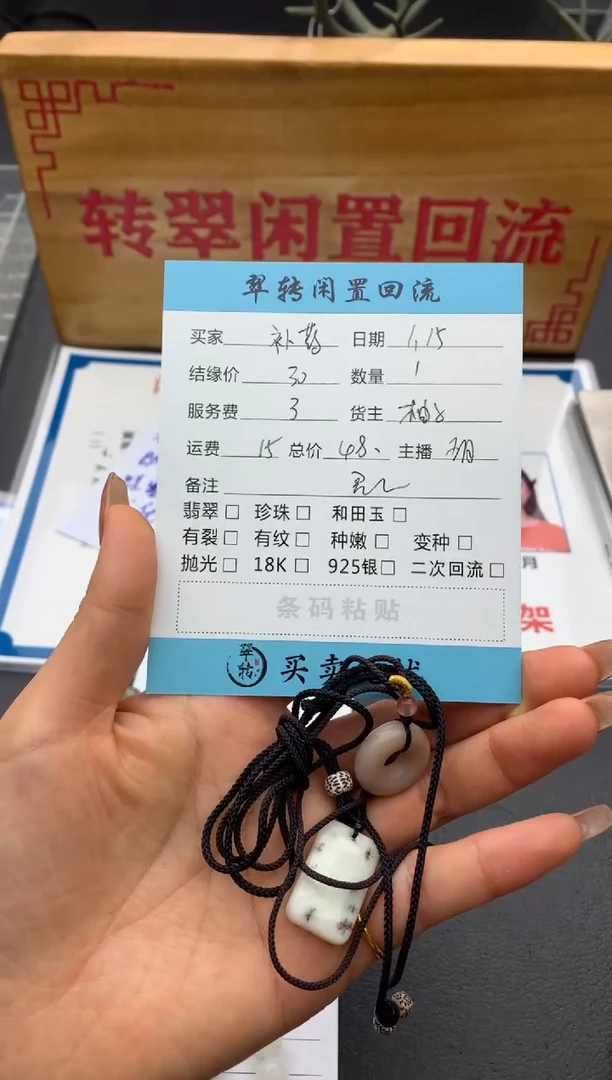 转翠闲置回流
翠转闲置回流
买家 日期 1.15
结缘价 30 数量 1
服务费 3 货主
运费 15 总价 48. 主播 玥
备注
翡翠□ 珍珠□ 和田玉□
有裂□ 有纹□ 种嫩□ 变种□
抛光□ 18K□ 925银□ 二次回流□
条码粘贴
翠转 买卖
月
架